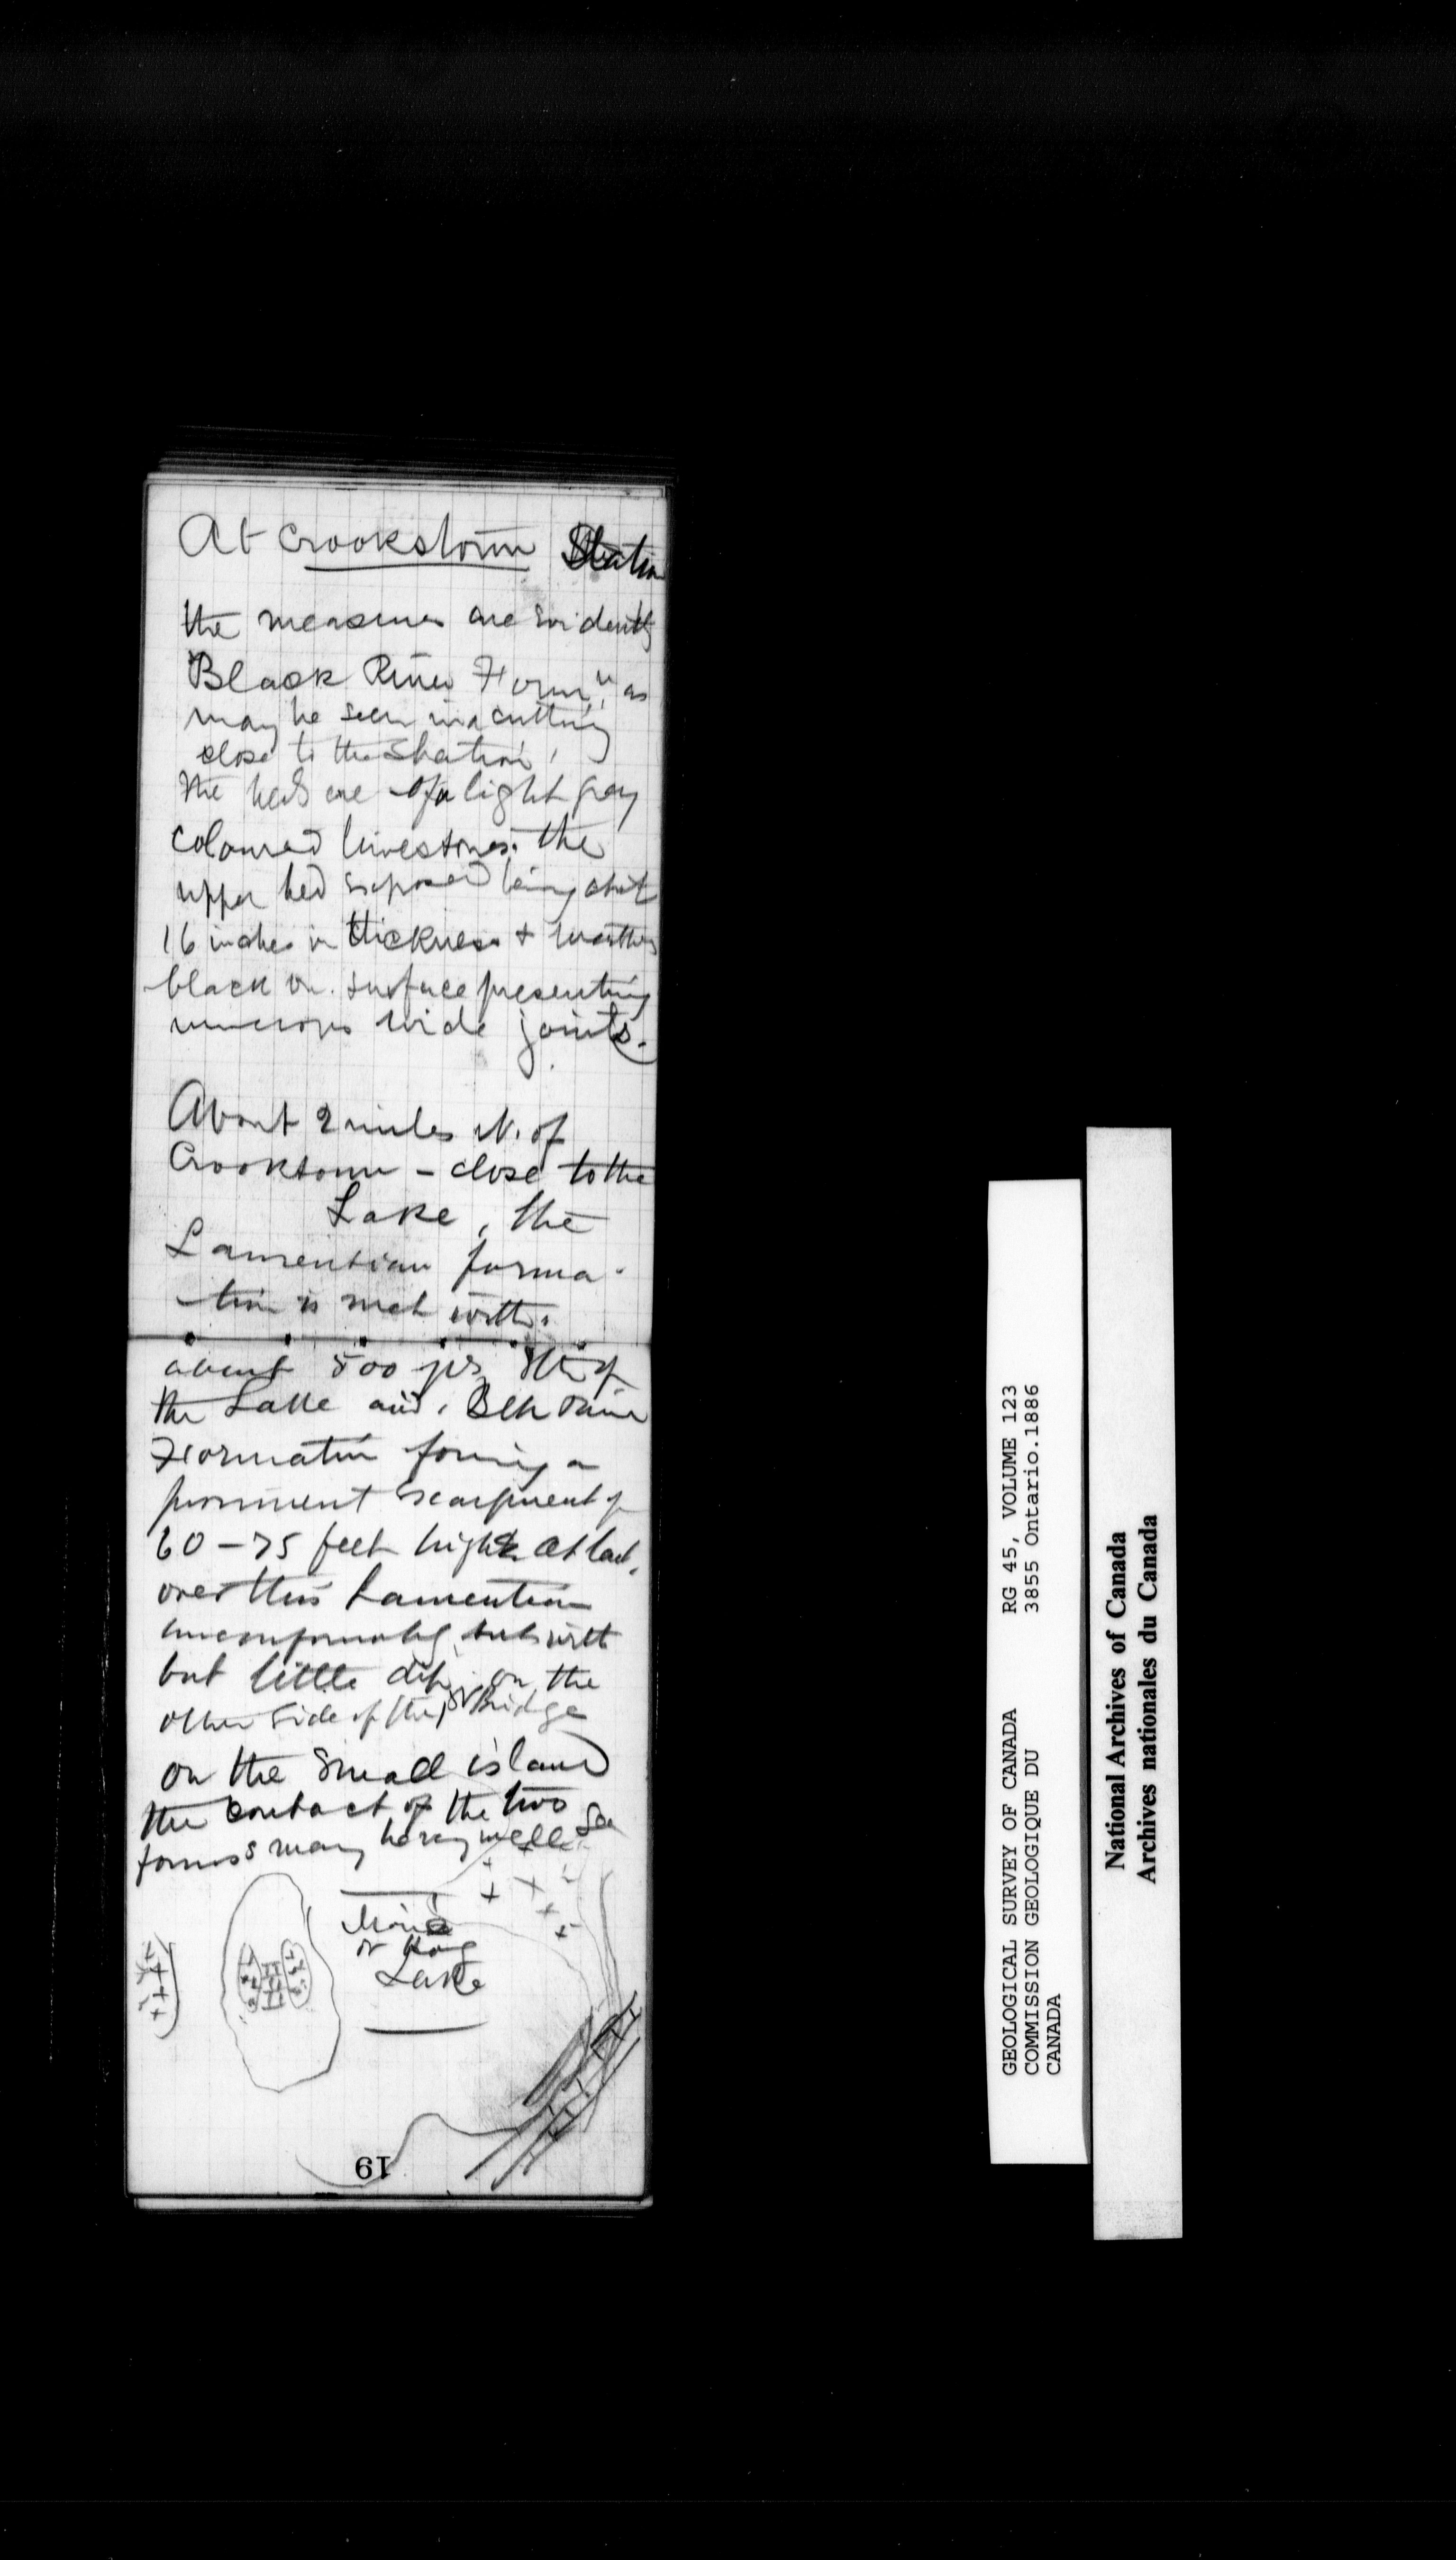 At Crookstown Station
the measures are evidently
"Black River Form", as
may be seen in a cutting
close to the station,
the beds are of a light gray
coloured limestones. the
upper bed exposed being about
16 inches in thickness + weathers
black on surface presenting
numerous wide joints.
About 2 miles N. of
Crookstown - close to the
Lake, the
Laurentian forma-
tion is met with.
about 500 yds of
the Lake and, Blk River
Formation forming a
prominent escarpment of
60-75 feet high at last,
over this Laurentian
unconformably but with
but little dip. on the
other side of the Bridge
on the small island
the contact of the two
forms may be very well
or Hog
Lake
19
GEOLOGICAL SURVEY OF CANADA RG 45, VOLUME 123
COMMISSION GEOLOGIQUE DU 3855 Ontario.1886
CANADA
National Archives of Canada
Archives nationales du Canada